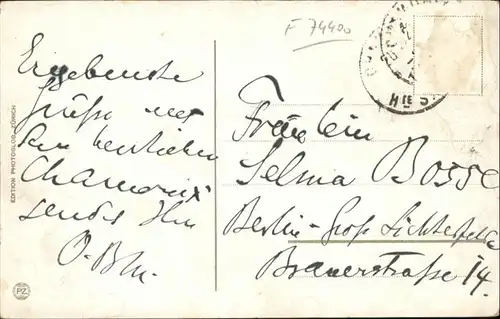 F 74400
Ergebenste
Grüße aus
dem herrlichen
Chamonix
sendet Ihn
O. Blm.
Fräulein
Selma Bosse
Berlin-Groß Lichterfelde
Brauerstraße 14.
HTE S
EDITION PHOTOGLOB, ZÜRICH
PZ